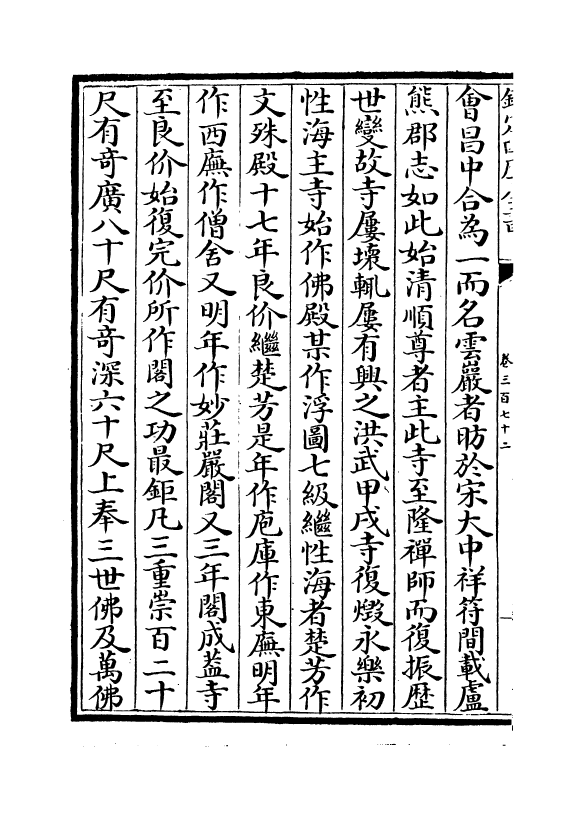 會昌中合為一而名雲巖者昉於宋大中祥符間載盧
熊郡志如此始清順尊者主此寺至隆禪師而復振歴
世變故寺屢壞輒屢有興之洪武甲戌寺復燬永樂初
性海主寺始作佛殿某作浮圖七級繼性海者楚芳作
文殊殿十七年良价繼楚芳是年作庖庫作東廡明年
作西廡作僧舍又明年作妙莊嚴閣又三年閣成葢寺
至良价始復完价所作閣之功最鉅凡三重崇百二十
尺有奇廣八十尺有奇深六十尺上奉三世佛及萬佛
卷三百七十二